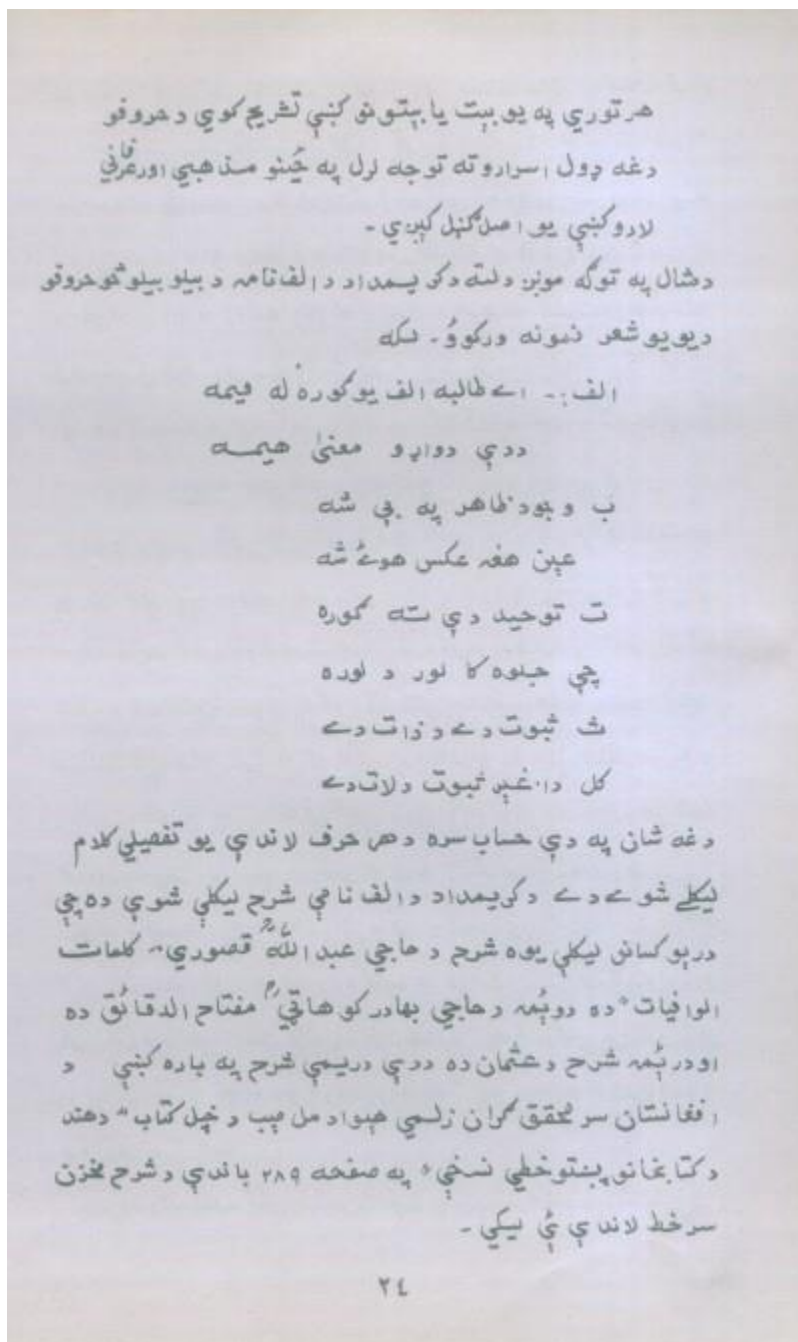 هر توري په يو بېت يا بېتونو کښې تشريح کوي د حروفو
دغه ډول اسرارو ته توجه لرل په ځينو مذهبي اور عرفاني
لارو کښې يو اصل ګڼل کېږي -
د مثال په توګه مونږ دلته د کريمداد د الف نامه د بيلو بيلو څو حروفو
د يو يو شعر نمونه ورکوؤ - لکه
الف :- اے طالبه الف يو ګوره له ميمه
ددې دواړو معنیٰ هيمه
ب وجود ظاهر په بې شه
عين هغه عکس هوئے شه
ت توحيد دې ته ګوره
چې جلوه کا لور د لوره
ث ثبوت دے د ذات دے
کل دا غېر ثبوت د لات دے
دغه شان په دې حساب سره د هر حرف لاندې يو تفصيلي کلام
ليکلے شوے دے د کريمداد د الف نامې شرح ليکلې شوې ده چې
دريو کسانو ليکلې يوه شرح د حاجي عبد اللهؒ قصوري " کلمات
الوافيات " ده دوئمه د حاجي بهادر کوهاټيؒ مفتاح الدقائق ده
او درئمه شرح د عثمان ده ددې دريمې شرح په باره کښې د
افغانستان سر محقق ګران زلمي هېواد مل هېب د خپل کتاب " د هند
د کتابخانو پښتو خطي نسخې " په صفحه ٢٨٩ باندې د شرح مخزن
سرخط لاندې ئې ليکي -
٢٤